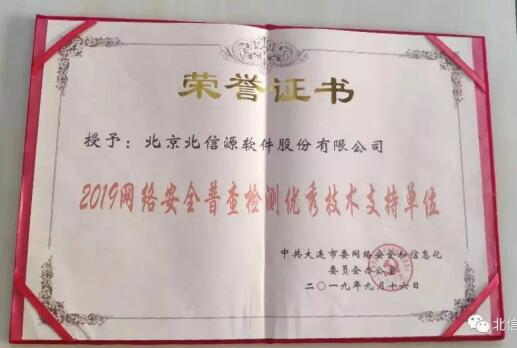 荣誉证书
授予：北京北信源软件股份有限公司
2019网络安全普查检测优秀技术支持单位
中共大连市委网络安全和信息化
委员会办公室
二〇一九年九月十六日
北信